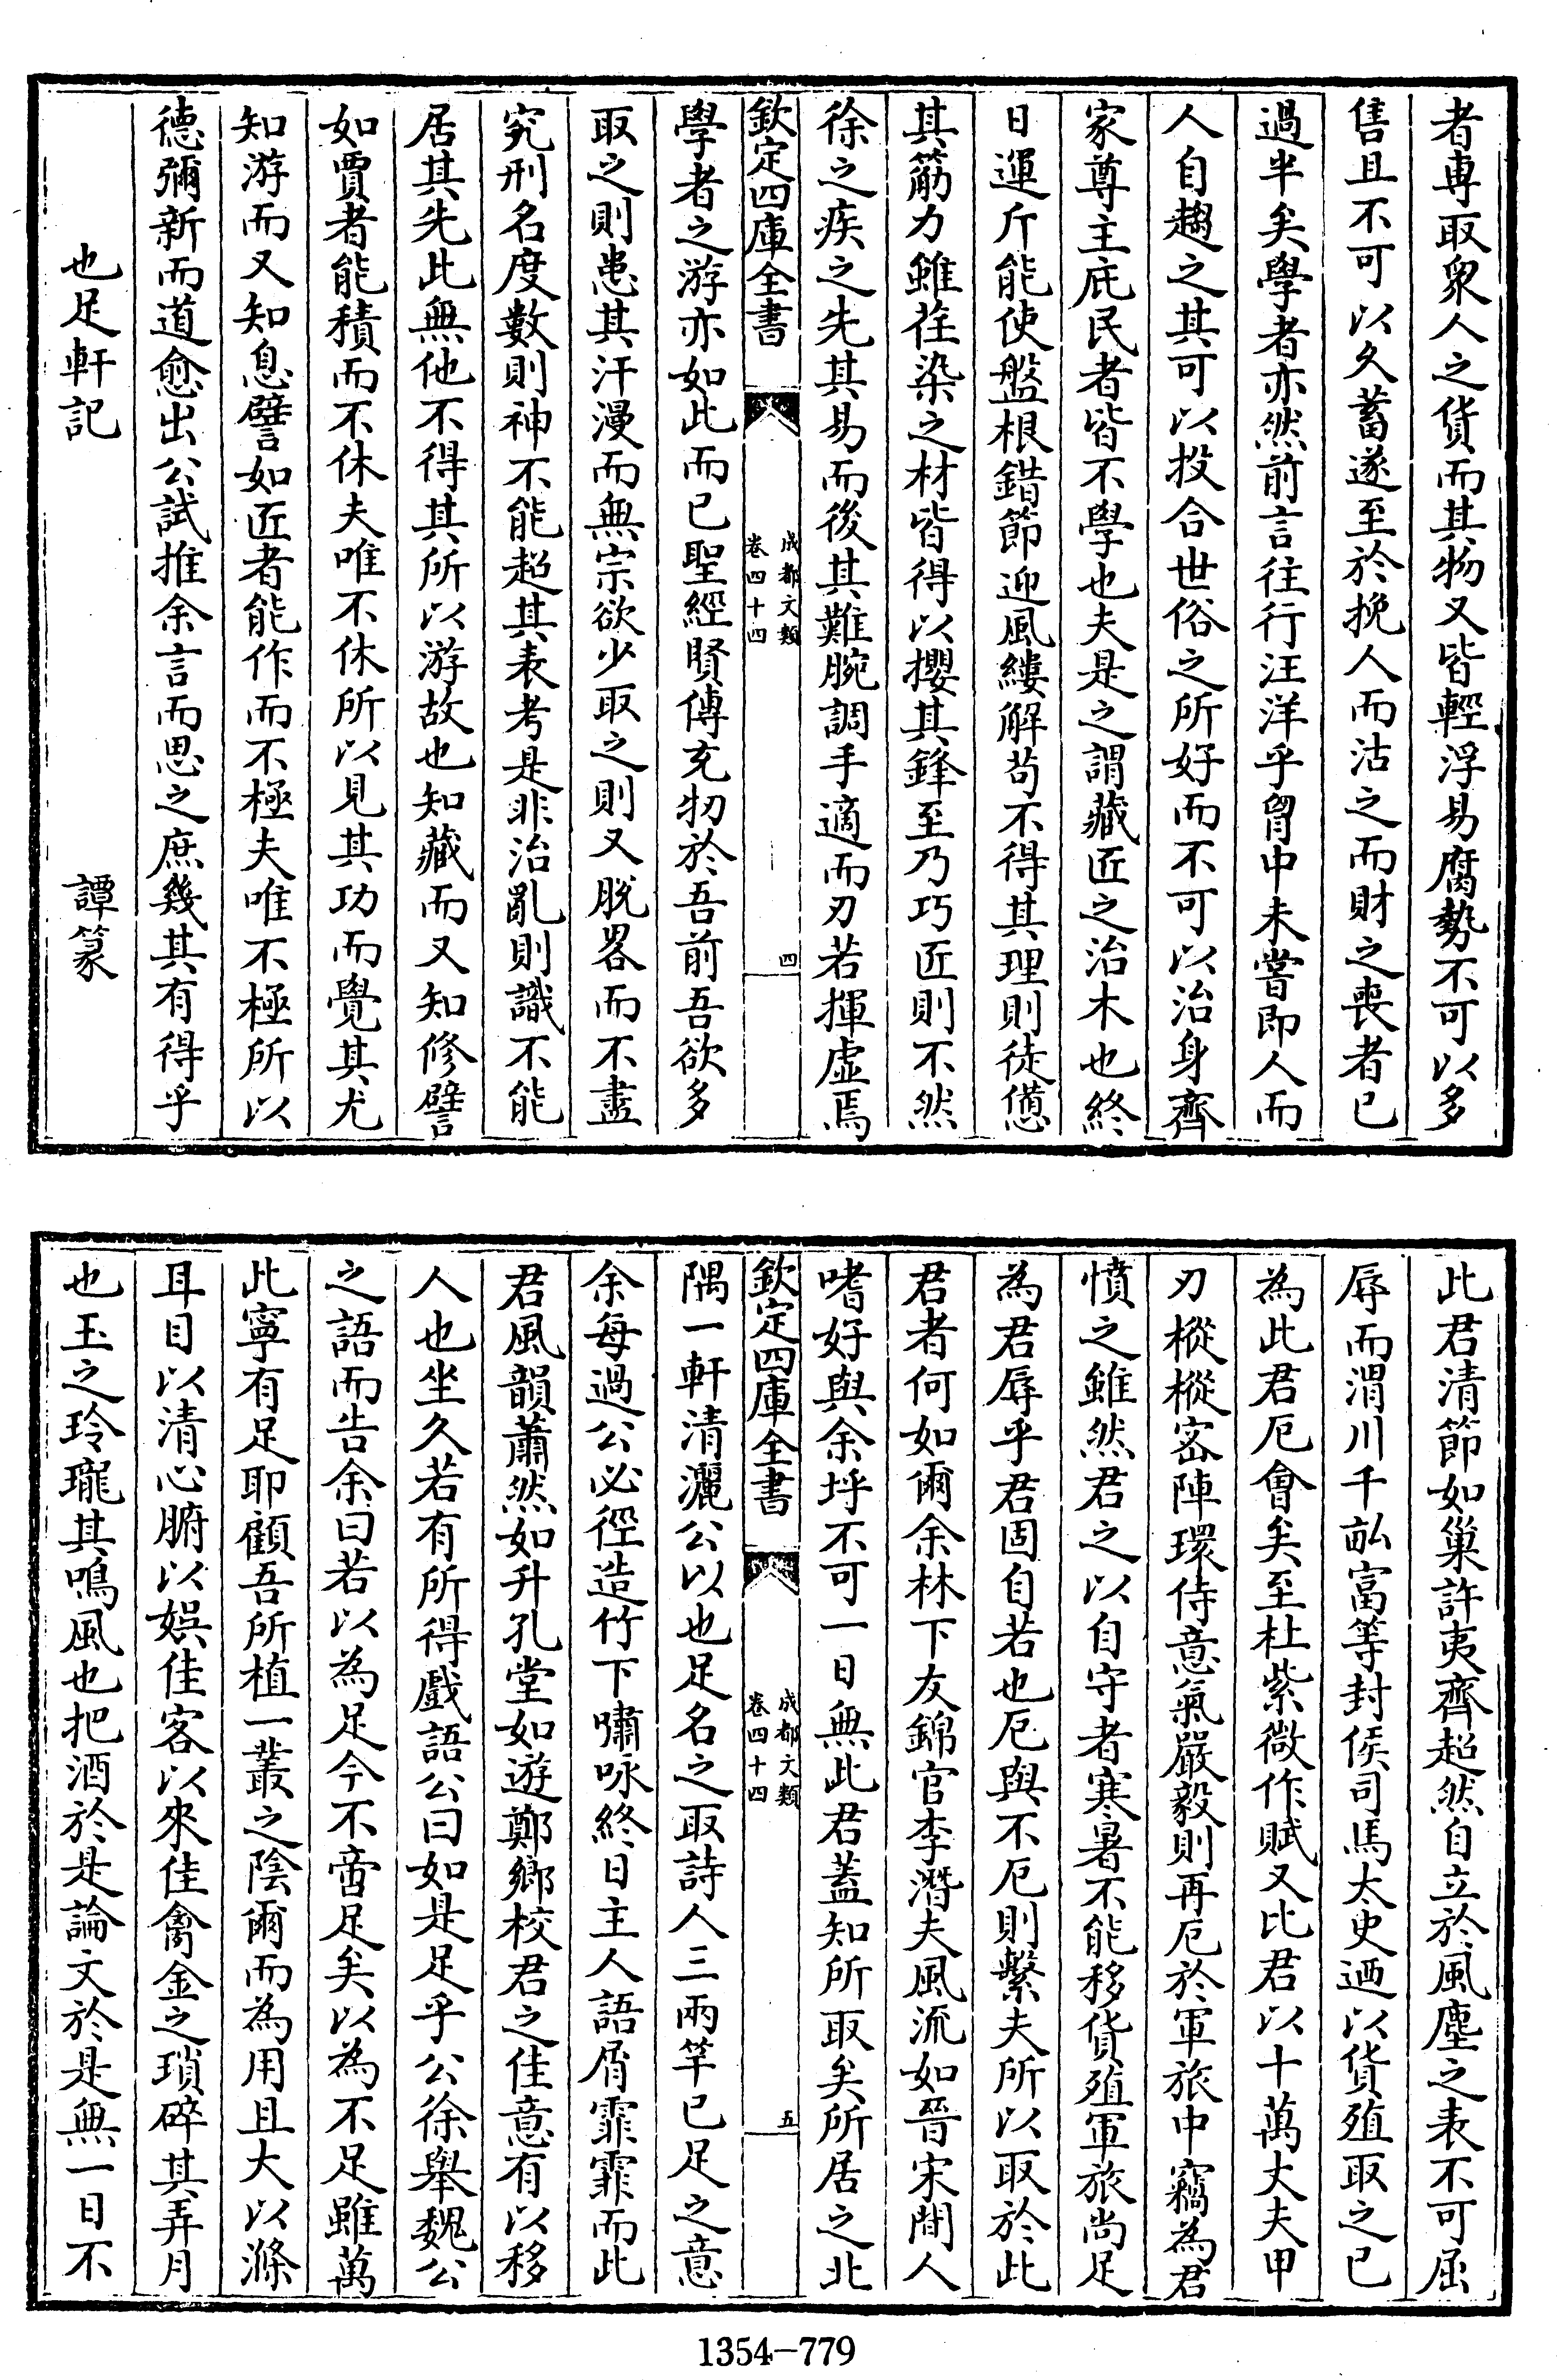 者專取衆人之貨而其物又皆輕浮易腐勢不可以多
售且不可以久蓄遂至於挽人而沽之而財之喪者已
過半矣學者亦然前言往行汪洋乎胷中未嘗即人而
人自趨之其可以投合世俗之所好而不可以治身齊
家尊主庇民者皆不學也夫是之謂藏匠之治木也終
日運斤能使盤根錯節迎風縷解苟不得其理則徒憊
其筋力雖荏染之材皆得以攖其鋒至乃巧匠則不然
徐之疾之先其易而後其難腕調手適而刃若揮虚焉
欽定四庫全書
成都文類
卷四十四
四
學者之游亦如此而已聖經賢傳充牣於吾前吾欲多
取之則患其汗漫而無宗欲少取之則又脱畧而不盡
究刑名度數則神不能超其表考是非治亂則識不能
居其先此無他不得其所以游故也知藏而又知修譬
如賈者能積而不休夫唯不休所以見其功而覺其尤
知游而又知息譬如匠者能作而不極夫唯不極所以
德彌新而道愈出公試推余言而思之庶幾其有得乎
也足軒記　譚篆
此君清節如巢許夷齊超然自立於風塵之表不可屈
辱而渭川千畝富等封侯司馬太史迺以貨殖取之已
為此君厄會矣至杜紫微作賦又比君以十萬丈夫甲
刃樅樅密陣環侍意氣嚴毅則再厄於軍旅中竊為君
憤之雖然君之以自守者寒暑不能移貨殖軍旅尚足
為君辱乎君固自若也厄與不厄則繫夫所以取於此
君者何如爾余林下友錦官李潛夫風流如晉宋間人
嗜好與余埒不可一日無此君蓋知所取矣所居之北
欽定四庫全書
成都文類
卷四十四
五
隅一軒清灑公以也足名之取詩人三兩竿已足之意
余每過公必徑造竹下嘯咏終日主人語屑霏霏而此
君風韻蕭然如升孔堂如遊鄭鄉校君之佳意有以移
人也坐久若有所得戲語公曰如是足乎公徐舉魏公
之語而告余曰若以為足今不啻足矣以為不足雖萬
此寧有足耶顧吾所植一叢之陰爾而為用且大以滌
耳目以清心腑以娛佳客以來佳禽金之瑣碎其弄月
也玉之玲瓏其鳴風也把酒於是論文於是無一日不
1354-779